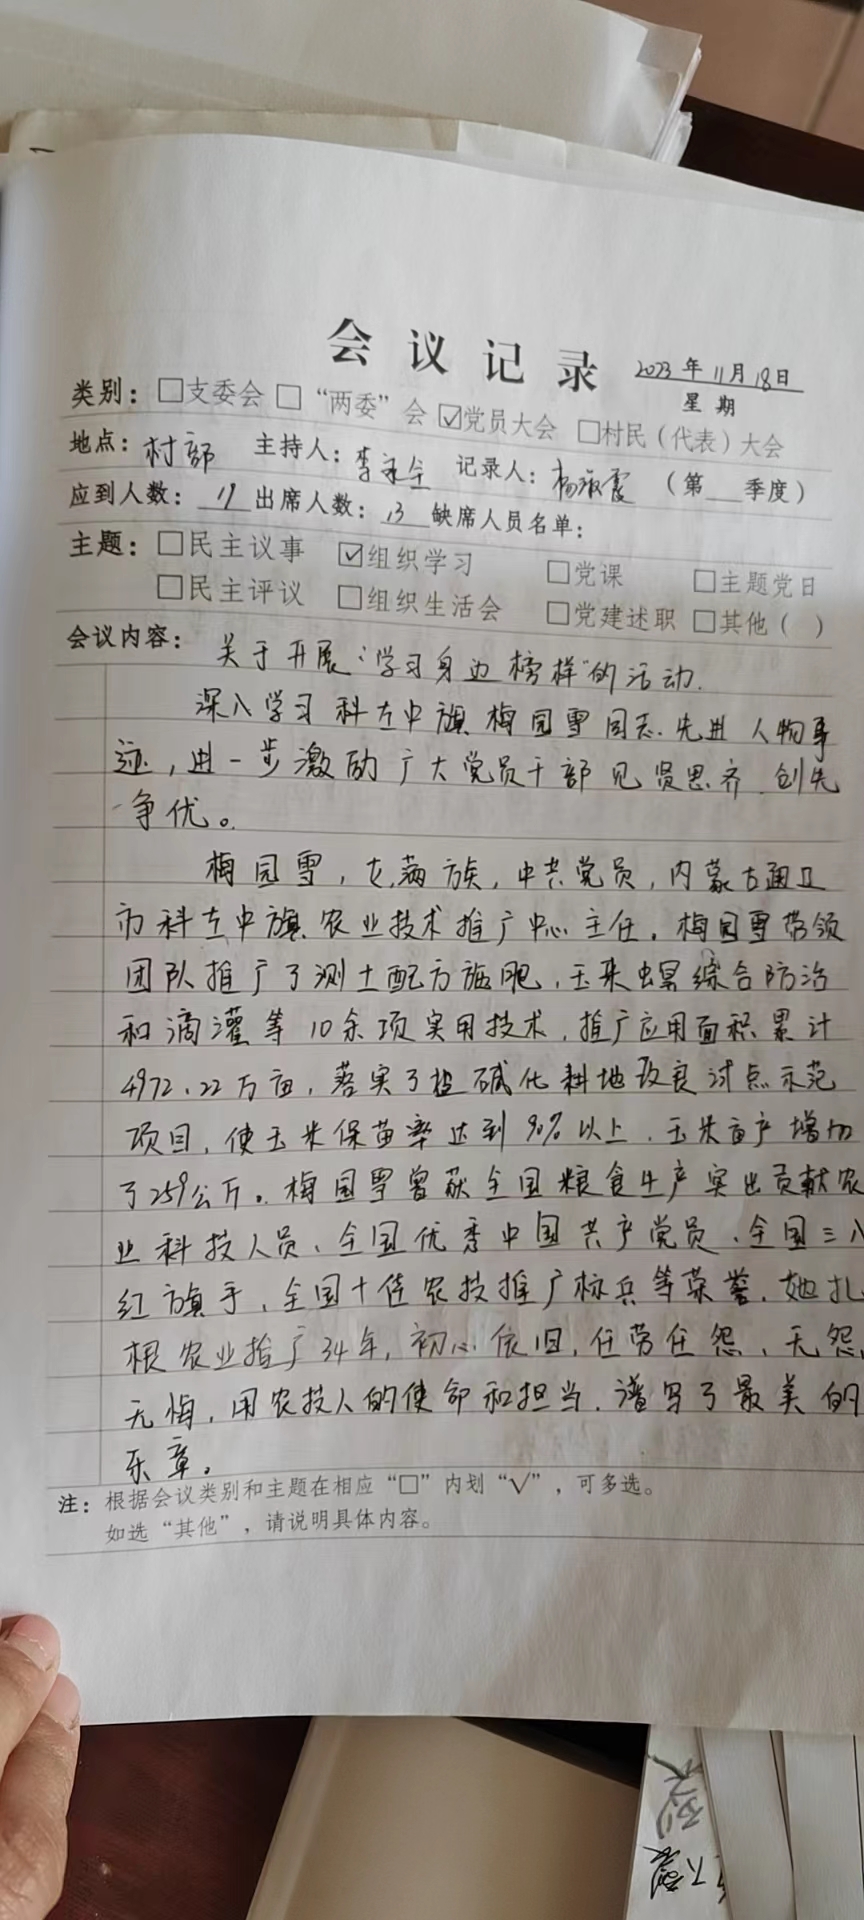 会议记录
2023年11月18日
星期
类别：□支委会 □“两委”会 ☑党员大会 □村民（代表）大会
地点：村部 主持人：李全 记录人：杨淑霞 （第 季度）
应到人数：17 出席人数：13 缺席人员名单：
主题：□民主议事 ☑组织学习 □党课 □主题党日
□民主评议 □组织生活会 □党建述职 □其他（ ）
会议内容：关于开展“学习身边榜样”的活动.
深入学习科左中旗梅园雪同志先进人物事
迹，进一步激励广大党员干部见贤思齐、创先
争优。
梅园雪，女，满族，中共党员，内蒙古通辽
市科左中旗农业技术推广中心主任。梅园雪带领
团队推广了测土配方施肥，玉米螟综合防治
和滴灌等10余项实用技术，推广应用面积累计
4972.22万亩，落实了盐碱化耕地改良试点示范
项目，使玉米保苗率达到90%以上，玉米亩产增加
了259公斤。梅园雪曾获全国粮食生产突出贡献农
业科技人员、全国优秀中国共产党员、全国三八
红旗手、全国十佳农技推广标兵等荣誉，她扎
根农业推广34年，初心依旧，任劳任怨，无怨
无悔，用农技人的使命和担当，谱写了最美的
乐章。
注：根据会议类别和主题在相应“□”内划“√”，可多选。
如选“其他”，请说明具体内容。